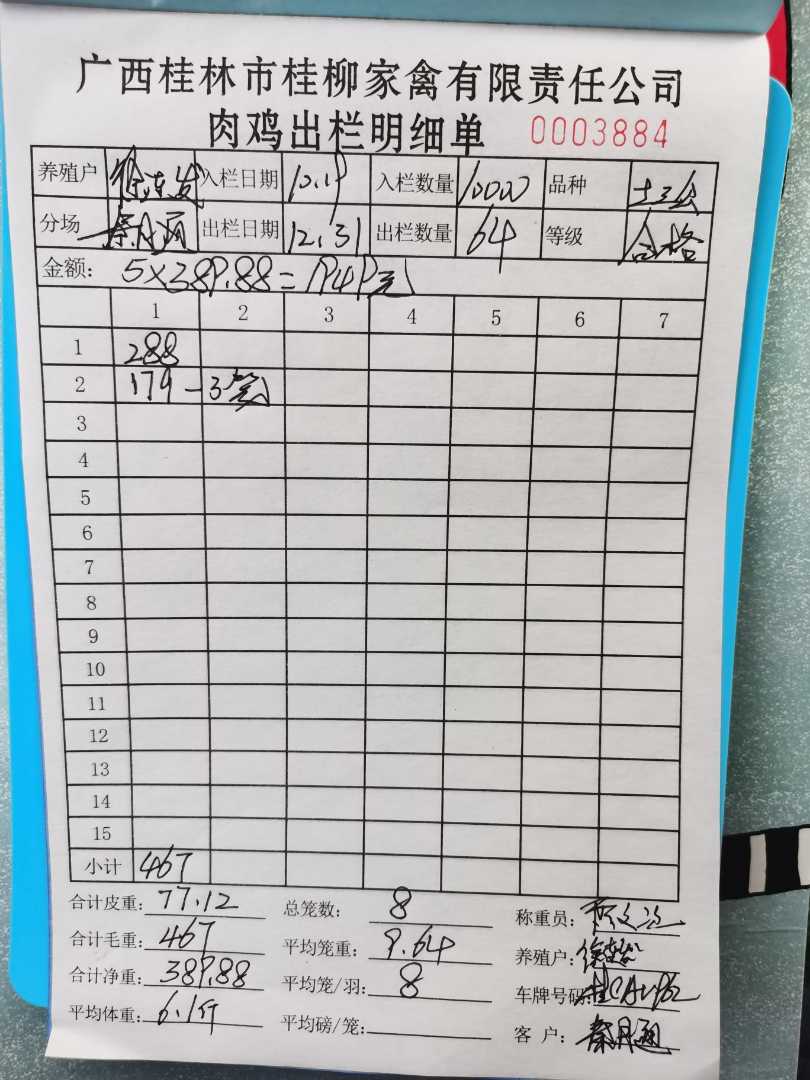 广西桂林市桂柳家禽有限责任公司
肉鸡出栏明细单 0003884
养殖户 徐连发 入栏日期 10.19 入栏数量 10000 品种
分场 秦月通 出栏日期 12.31 出栏数量 64 等级 合格
金额: 5×389.88=1949元
1 2 3 4 5 6 7
1 288
2 179-3笼
3
4
5
6
7
8
9
10
11
12
13
14
15
小计 467
合计皮重: 77.12 总笼数: 8 称重员:
合计毛重: 467 平均笼重: 9.64 养殖户:
合计净重: 389.88 平均笼/羽: 8 车牌号码:
平均体重: 6.1斤 平均磅/笼: 客 户: 秦月通